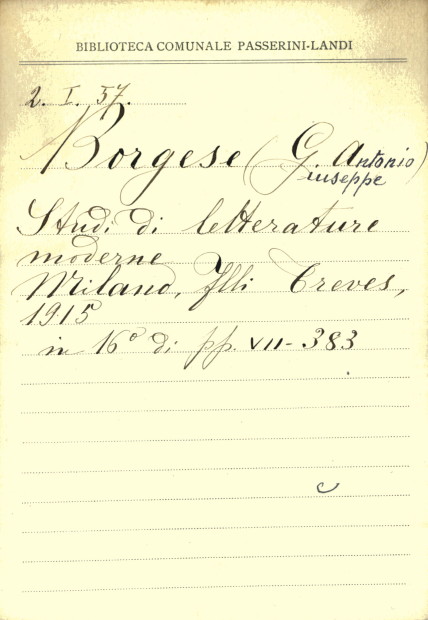 BIBLIOTECA COMUNALE PASSERINI-LANDI
2. I. 57.
Borgese (G. Antonio)
iuseppe
Studi di letterature
moderne
Milano, Flli Treves,
1915
in 16° di pp. VII-383
c